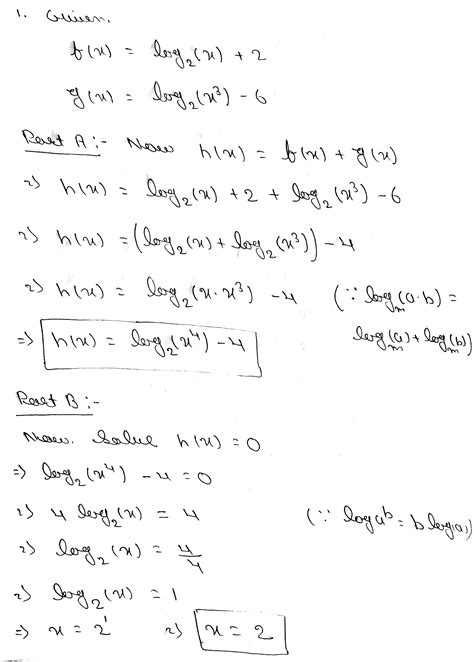 1. Given.
f(x) = log₂(x) + 2
g(x) = log₂(x³) - 6
Part A :- Now h(x) = f(x) + g(x)
=> h(x) = log₂(x) + 2 + log₂(x³) - 6
=> h(x) = (log₂(x) + log₂(x³)) - 4
=> h(x) = log₂(x·x³) - 4 (∵ logₘ(a·b) =
=> h(x) = log₂(x⁴) - 4 logₘ(a) + logₘ(b))
Part B :-
Now. Solve h(x) = 0
=> log₂(x⁴) - 4 = 0
=> 4 log₂(x) = 4 (∵ log aᵇ = b log(a))
=> log₂(x) = 4/4
=> log₂(x) = 1
=> x = 2¹ => x = 2